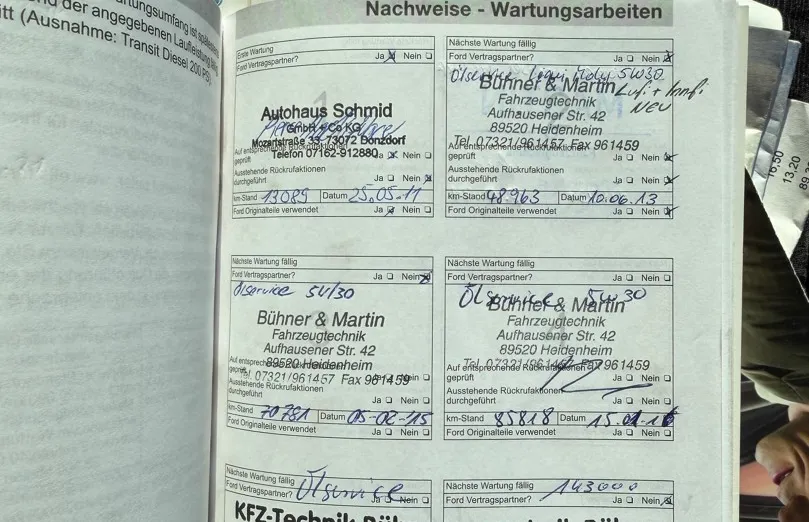 rtungsumfang ist spätestens
nd der angegebenen Laufleistung
itt (Ausnahme: Transit Diesel 200 PS)
Nachweise - Wartungsarbeiten
Erste Wartung
Ford Vertragspartner? Ja Nein
Autohaus Schmid
GmbH + Co KG
Mozartstraße 33, 73072 Donzdorf
Telefon 07162-912880
Auf entsprechende Rückrufaktionen
geprüft Ja Nein
Ausstehende Rückrufaktionen
durchgeführt Ja Nein
km-Stand 13089 Datum 25.05.11
Ford Originalteile verwendet Ja Nein
Nächste Wartung fällig
Ford Vertragspartner? Ja Nein
Ölservice Liqui Moly 5W30
Bühner & Martin
Fahrzeugtechnik
Aufhausener Str. 42
89520 Heidenheim
Tel. 07321/961457 Fax 961459
NEU
Auf entsprechende Rückrufaktionen
geprüft Ja Nein
Ausstehende Rückrufaktionen
durchgeführt Ja Nein
km-Stand 48.963 Datum 10.06.13
Ford Originalteile verwendet Ja Nein
Nächste Wartung fällig
Ford Vertragspartner? Ja Nein
Ölservice 5W30
Bühner & Martin
Fahrzeugtechnik
Aufhausener Str. 42
89520 Heidenheim
Tel. 07321/961457 Fax 961459
Auf entsprechende Rückrufaktionen
geprüft Ja Nein
Ausstehende Rückrufaktionen
durchgeführt Ja Nein
km-Stand 70781 Datum 05-02-15
Ford Originalteile verwendet Ja Nein
Nächste Wartung fällig
Ford Vertragspartner? Ja Nein
Ölservice 5W30
Bühner & Martin
Fahrzeugtechnik
Aufhausener Str. 42
89520 Heidenheim
Tel. 07321/961457 Fax 961459
Auf entsprechende Rückrufaktionen
geprüft Ja Nein
Ausstehende Rückrufaktionen
durchgeführt Ja Nein
km-Stand 85818 Datum
Ford Originalteile verwendet Ja Nein
Nächste Wartung fällig
Ford Vertragspartner? Ölservice Ja Nein
KFZ-Technik
Nächste Wartung fällig
Ford Vertragspartner? 143000 Ja Nein
16,50
13,20